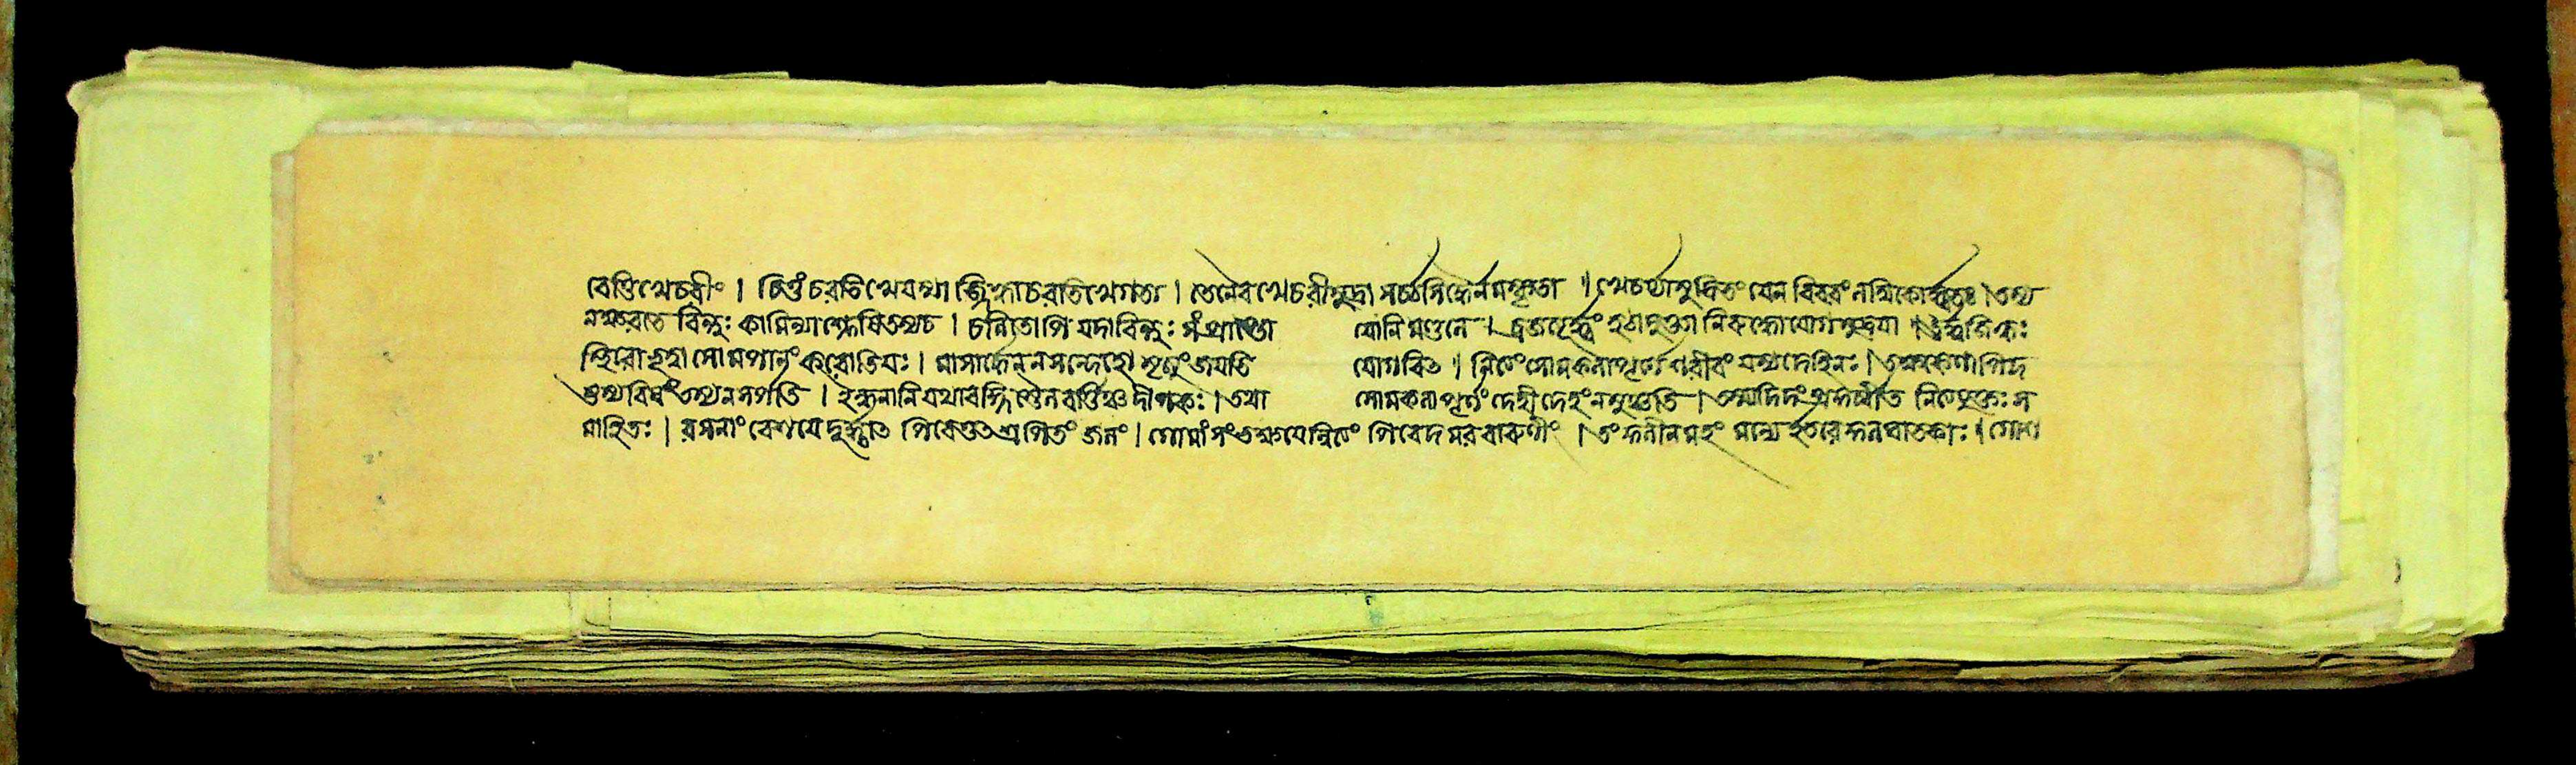 বেত্তি খেচরীং । চিত্তং চরতি খে যস্মা জ্জিহ্বা চরতি খে গতা । তেনৈব খেচরী মুদ্রা সর্ব্বসিদ্ধৈর্নমস্কৃতা ॥ খেচর্য্যা মুদ্রিতং যেন বিবরং লম্বিকোর্দ্ধতঃ । তস্য
ন ক্ষরতে বিন্দুঃ কামিন্যাশ্লেষিতস্য চ । চলিতোপি যদা বিন্দুঃ সংপ্রাপ্তো যোনিমণ্ডলে । ব্রজত্যূর্দ্ধং হঠাচ্ছক্ত্যা নিরুদ্ধো যোগমুদ্রয়া । ঊর্দ্ধজিহ্বঃ
স্থিরো ভূত্বা সোমপানং করোতি যঃ । মাসার্দ্ধেন ন সন্দেহো মৃত্যুং জয়তি যোগবিত । নিত্যং সোমকলাপূর্ণং শরীরং যস্য দেহিনঃ । তক্ষকেণাপি দ
ষ্টস্য বিষং তস্য ন সর্পতি । ইন্ধনানি যথা বহ্নি স্তৈলবর্ত্তিঞ্চ দীপকঃ । তথা সোমকলাপূর্ণং দেহী দেহং ন মুঞ্চতি ।
মাহিতঃ । গোমাংসং ভক্ষয়েন্নিত্যং পিবেদমরবারুণীং । তং কুলীনমহং মন্যে ইতরে কুলঘাতকাঃ । গোশ